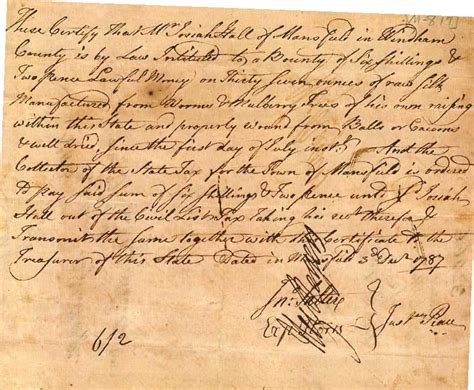 These Certify that Mr Josiah Hall of Mansfield in Windham
County is by Law Intituled to a Bounty of Six shillings &
Two Pence Lawful Money on Thirty Seven ounces of raw silk
Manufactured from Worms & Mulberry Trees of his own raising
within this State and properly wound from Balls or Cacoons
& well dried, since the first day of July inst. And the
Collector of the State Tax for the Town of Mansfield is ordered
To Pay said sum of six shillings & Two Pence unto sd Josiah
Hall out of the Civil List Tax Taking his rect thereof &
Transmit the same together with this Certificate to the
Treasurer of this State Dated in Mansfield 3d Decr 1787
Jno
Storrs
Just Peace
6/2